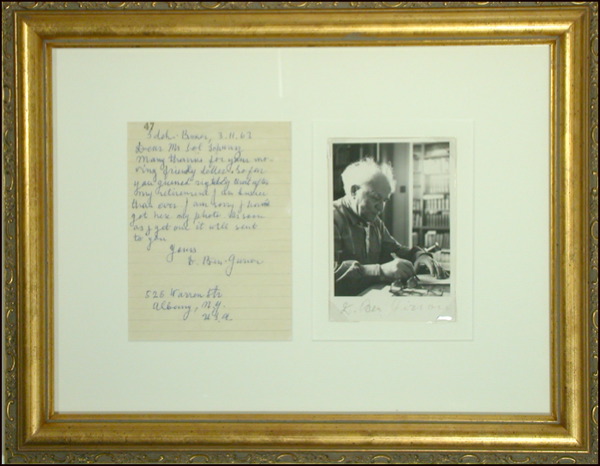 47
Sdeh-Boker, 3.11.63
Dear Mr Sol
Many thanks for your mo-
ving friendly letter. So far
you guessed rightly that after
my retirement I am busier
than ever. I am sorry I
got here my photo. As soon
as I get one it will sent
to you
Yours
D. Ben-Gurion
526 Warren Str.
Albany, N.Y.
U.S.A
D. Ben Gurion